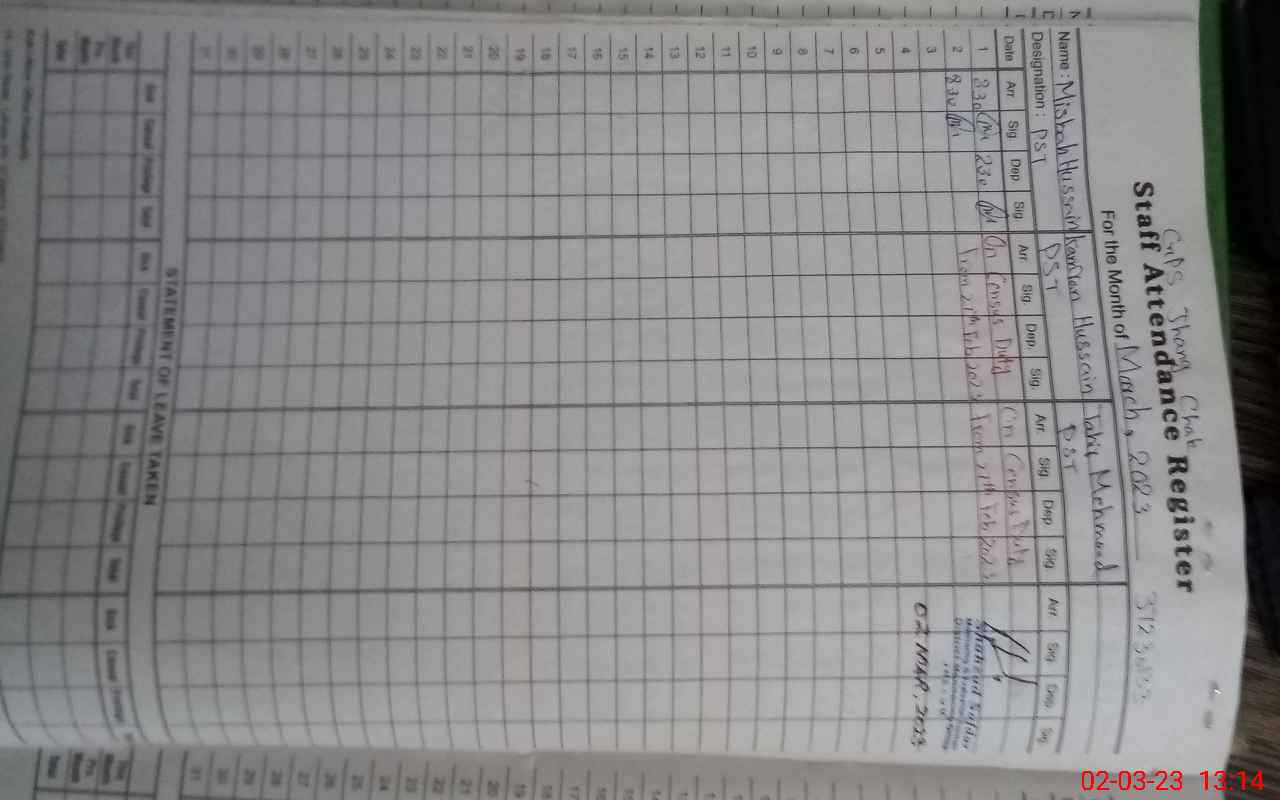 GPS Jhang Chak
Staff Attendance Register
For the Month of March, 2023
Name: Misbah Hussain Kamran Hussain Tahir Mehmood
Designation: PST PST PST
Date Arr Sig. Dep. Sig Arr Sig. Dep. Sig. Arr. Sig Dep Sig Arr Sig Dep Sig
1 830 230 On Census Duty On Census Duty
2 830 From 27th Feb 2023 From 27th Feb 2023
Shahzad Safdar
3
02 MAR, 2023
4
5
6
7
8
9
10
11
12
13
14
15
16
17
18
19
20
21
22
23
24
25
26
27
28
29
30
31
STATEMENT OF LEAVE TAKEN
Sick Casual Privilege Total Sick Casual Privilege Total Sick Casual Privilege Total Sick Casual Privilege
This Month
Pre. Month
Total
02-03-23 13:14